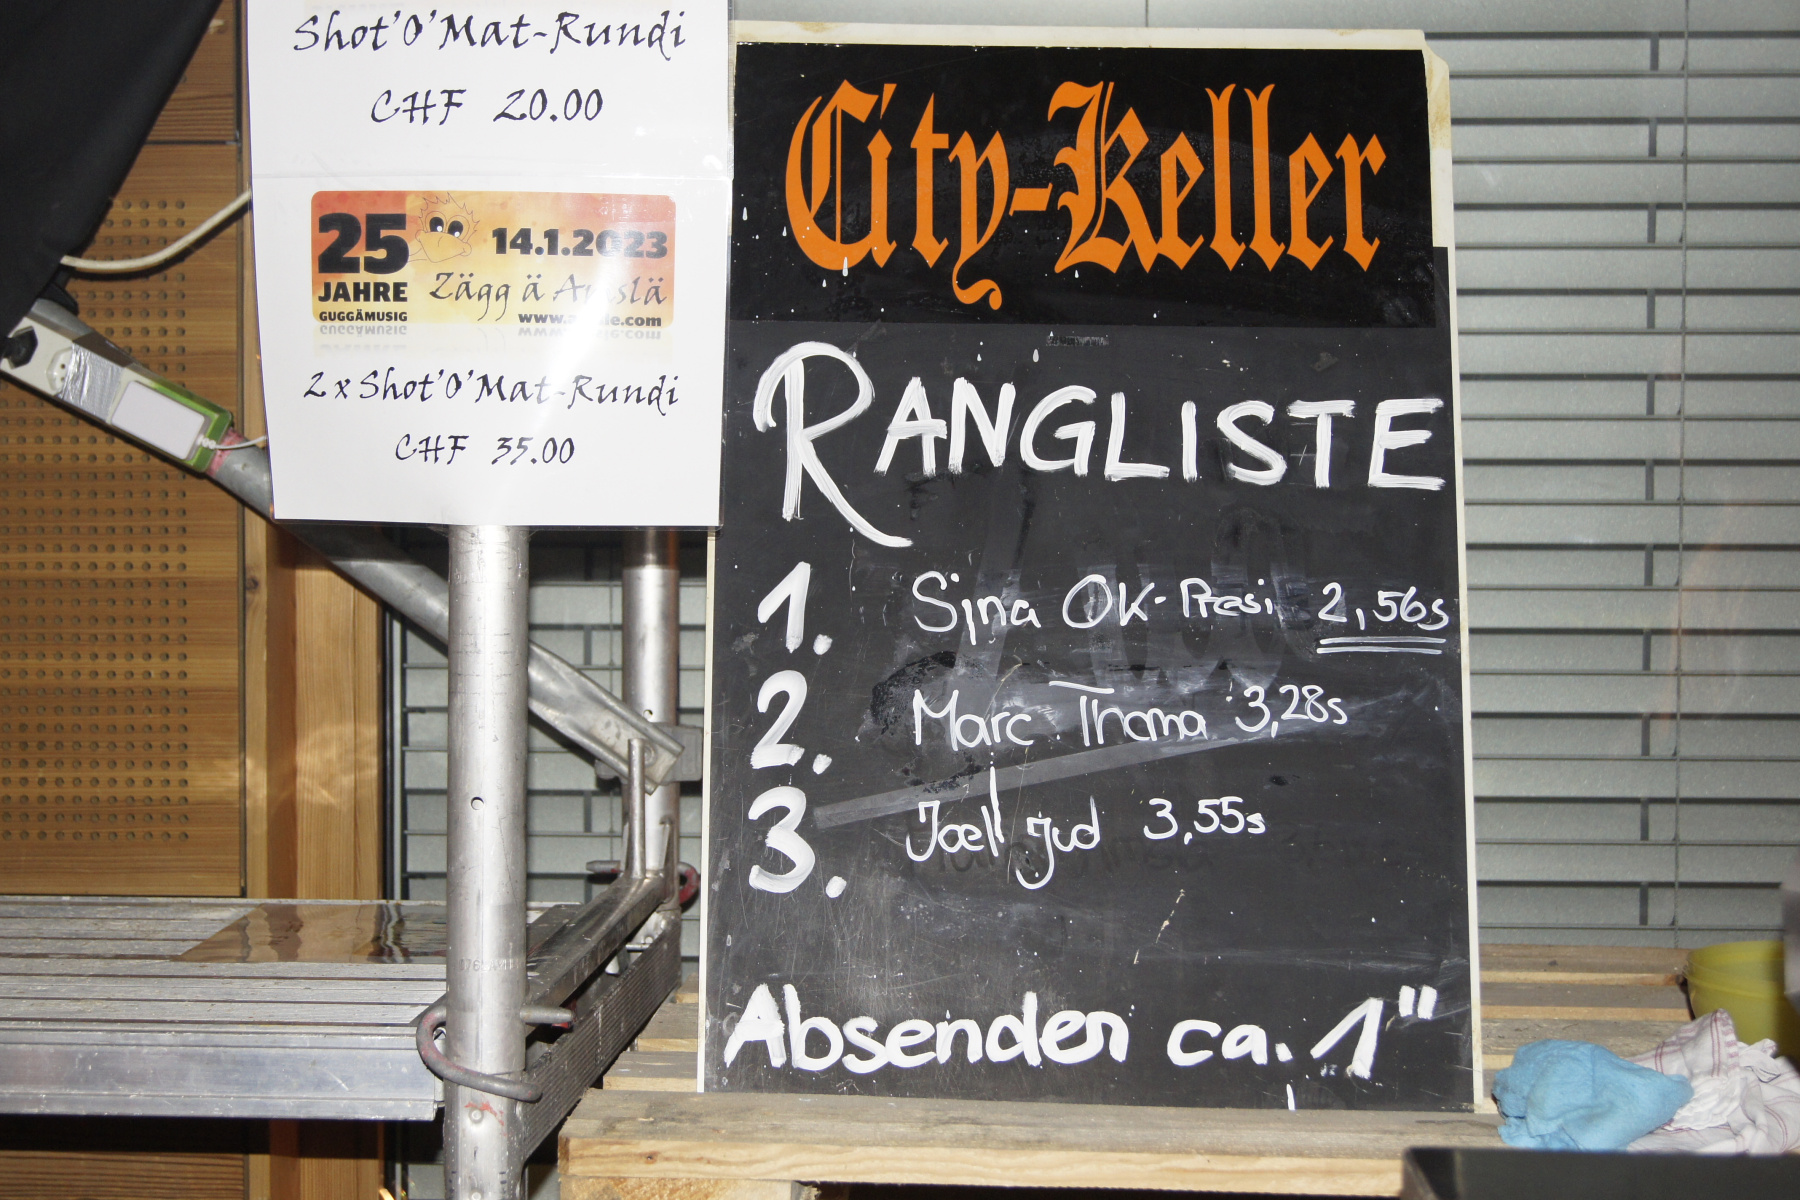 Shot'O'Mat-Rundi
CHF 20.00
25
JAHRE
GUGGÄMUSIG
14.1.2023
Zägg ä Amslä
2 x Shot'O'Mat-Rundi
CHF 35.00
City-Keller
RANGLISTE
1. Sina OK-Presi 2,56s
2. Marc Thoma 3,28s
3. Joell Jud 3,55s
Absenden ca. 1"